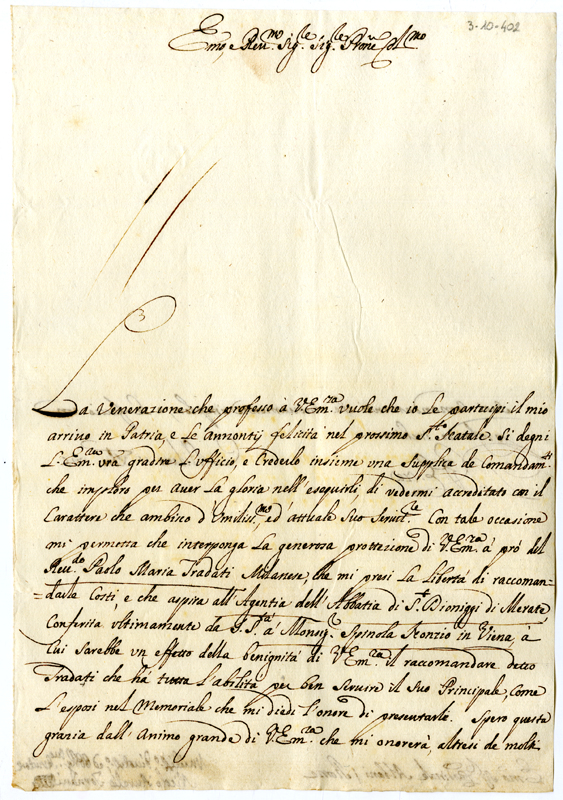 3-10-402
Emo, e Reu.mo Sig.re Sig.re Prone Col.mo
La Venerazione che professo à V.Em.za vuole che io Le partecipi il mio
arriuo in Patria, e Le Annontij felicità nel prossimo S.to Natale. Si degni
L'Em.a vra gradire L'ufficio, e Crederlo insieme una Supplica de Comandam.ti
che imploro per auer La gloria nell'eseguirli, di vedermi accreditato con il
Carattere che ambisco d'Umiliss.mo, ed attuale Suo Seruit.re Con tale occasione
mi permetta che interponga La generosa protezione di V.Em.za à prò del
Reu.do Paolo Maria Tradati Milanese, che mi presi La Libertà di raccoman-
-darle Costì, e che aspira all'Agentia dell'Abbatia di S.t Dionigi di Merate
Conferita Vltimamente da S.S.tà à Monsig.r Spinola Nonzio in Viena, à
Lui sarebbe un effetto della benignità di V.Em.za il raccomandare detto
Tradati che ha tutta L'abilità per ben Seruire il Suo Principale, Come
L'esposi nel Memoriale che mi diedi l'onore di presentarle. Spero questa
grazia dall'Animo grande di V.Em.za che mi onorerà, altresì de molti